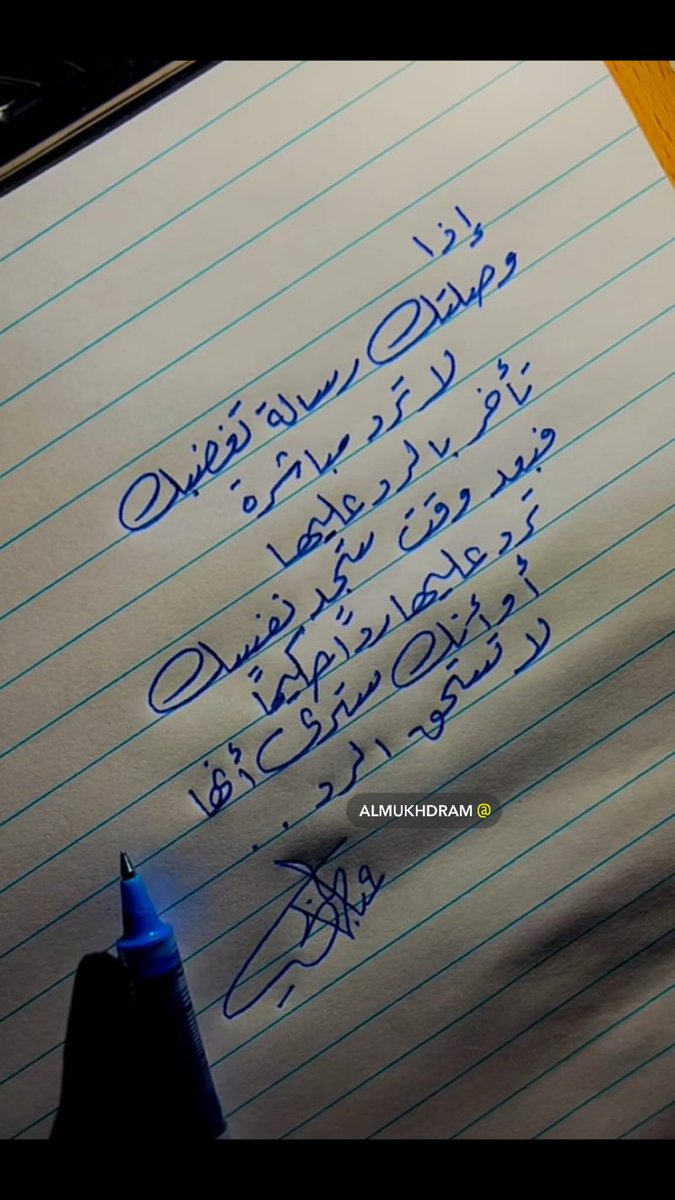 إذا
وصلتك رسالة تغضبك
لا ترد مباشرة
تأخر بالرد عليها
فبعد وقت ستجد نفسك
ترد عليها رداً حكيماً
أو أنك سترى أنها
لا تستحق الرد..
ALMUKHDRAM @